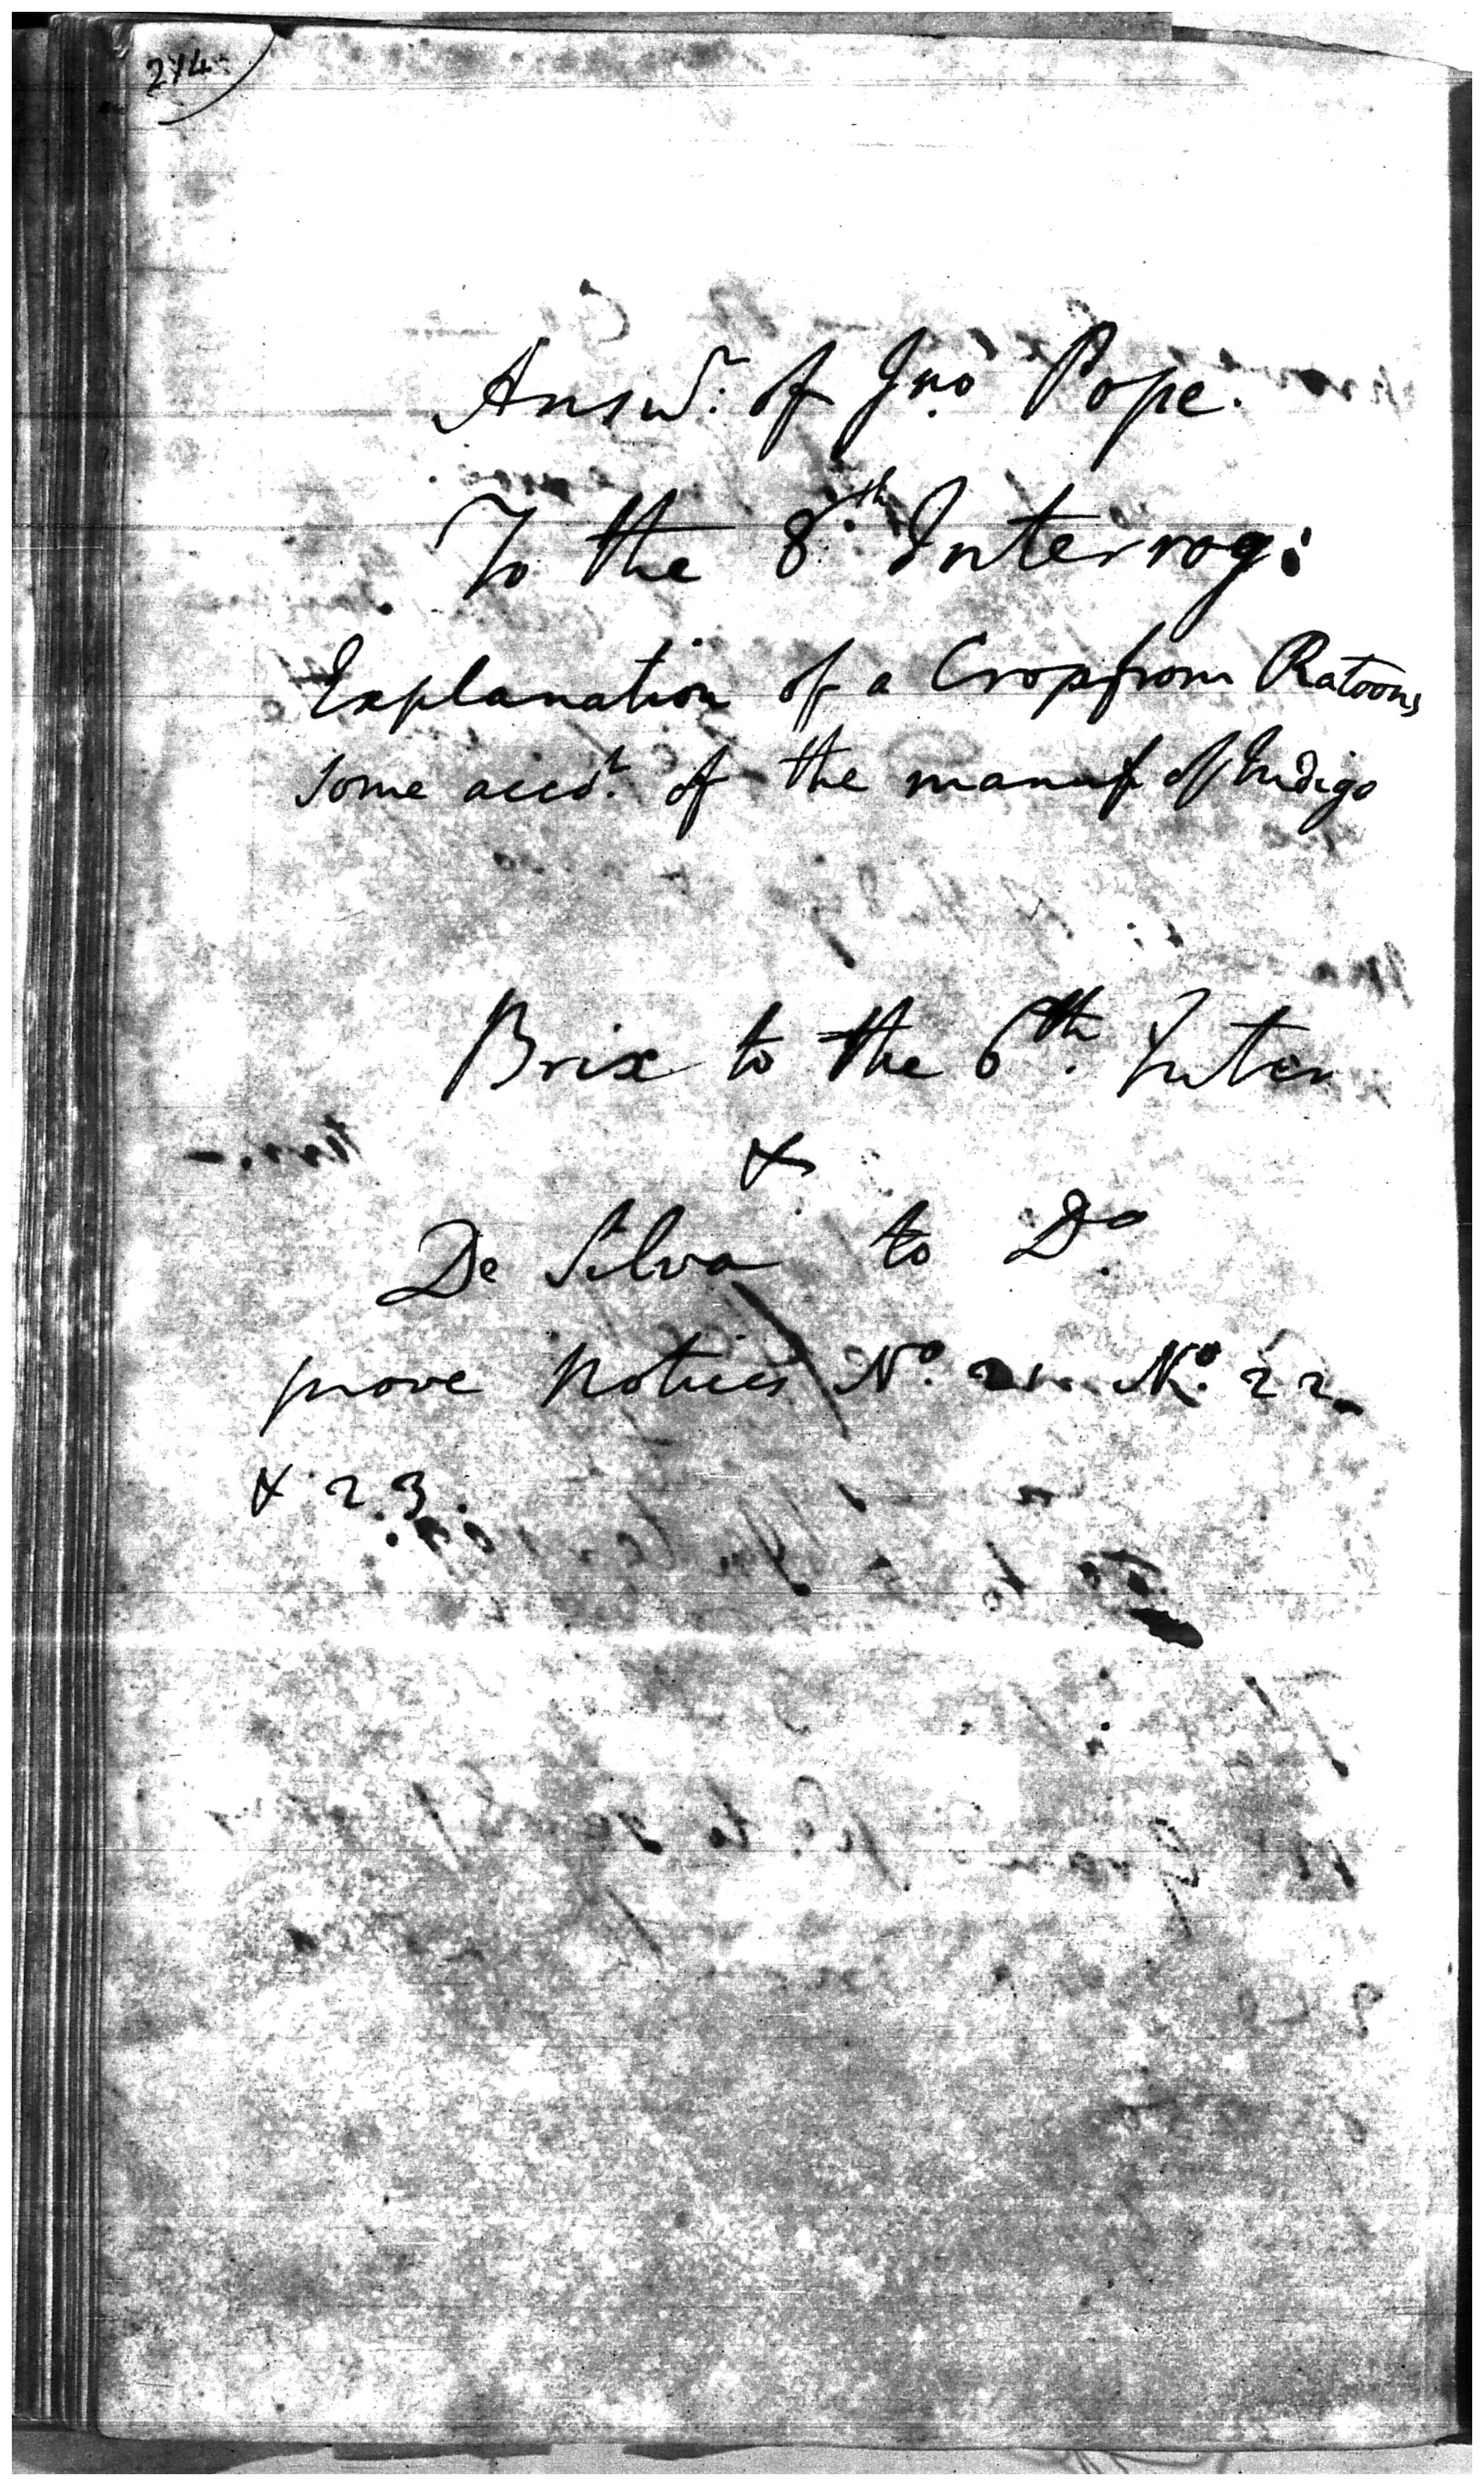 274
Answr. of Jno Pope.
To the 8th. Interrog:
Explanation of a Crop from Ratoons
some acct. of the manuf of Indigo
Brix to the 6th. Inter
&
De Silva to Do.
prove Notices No. 21. No. 22
& 23.